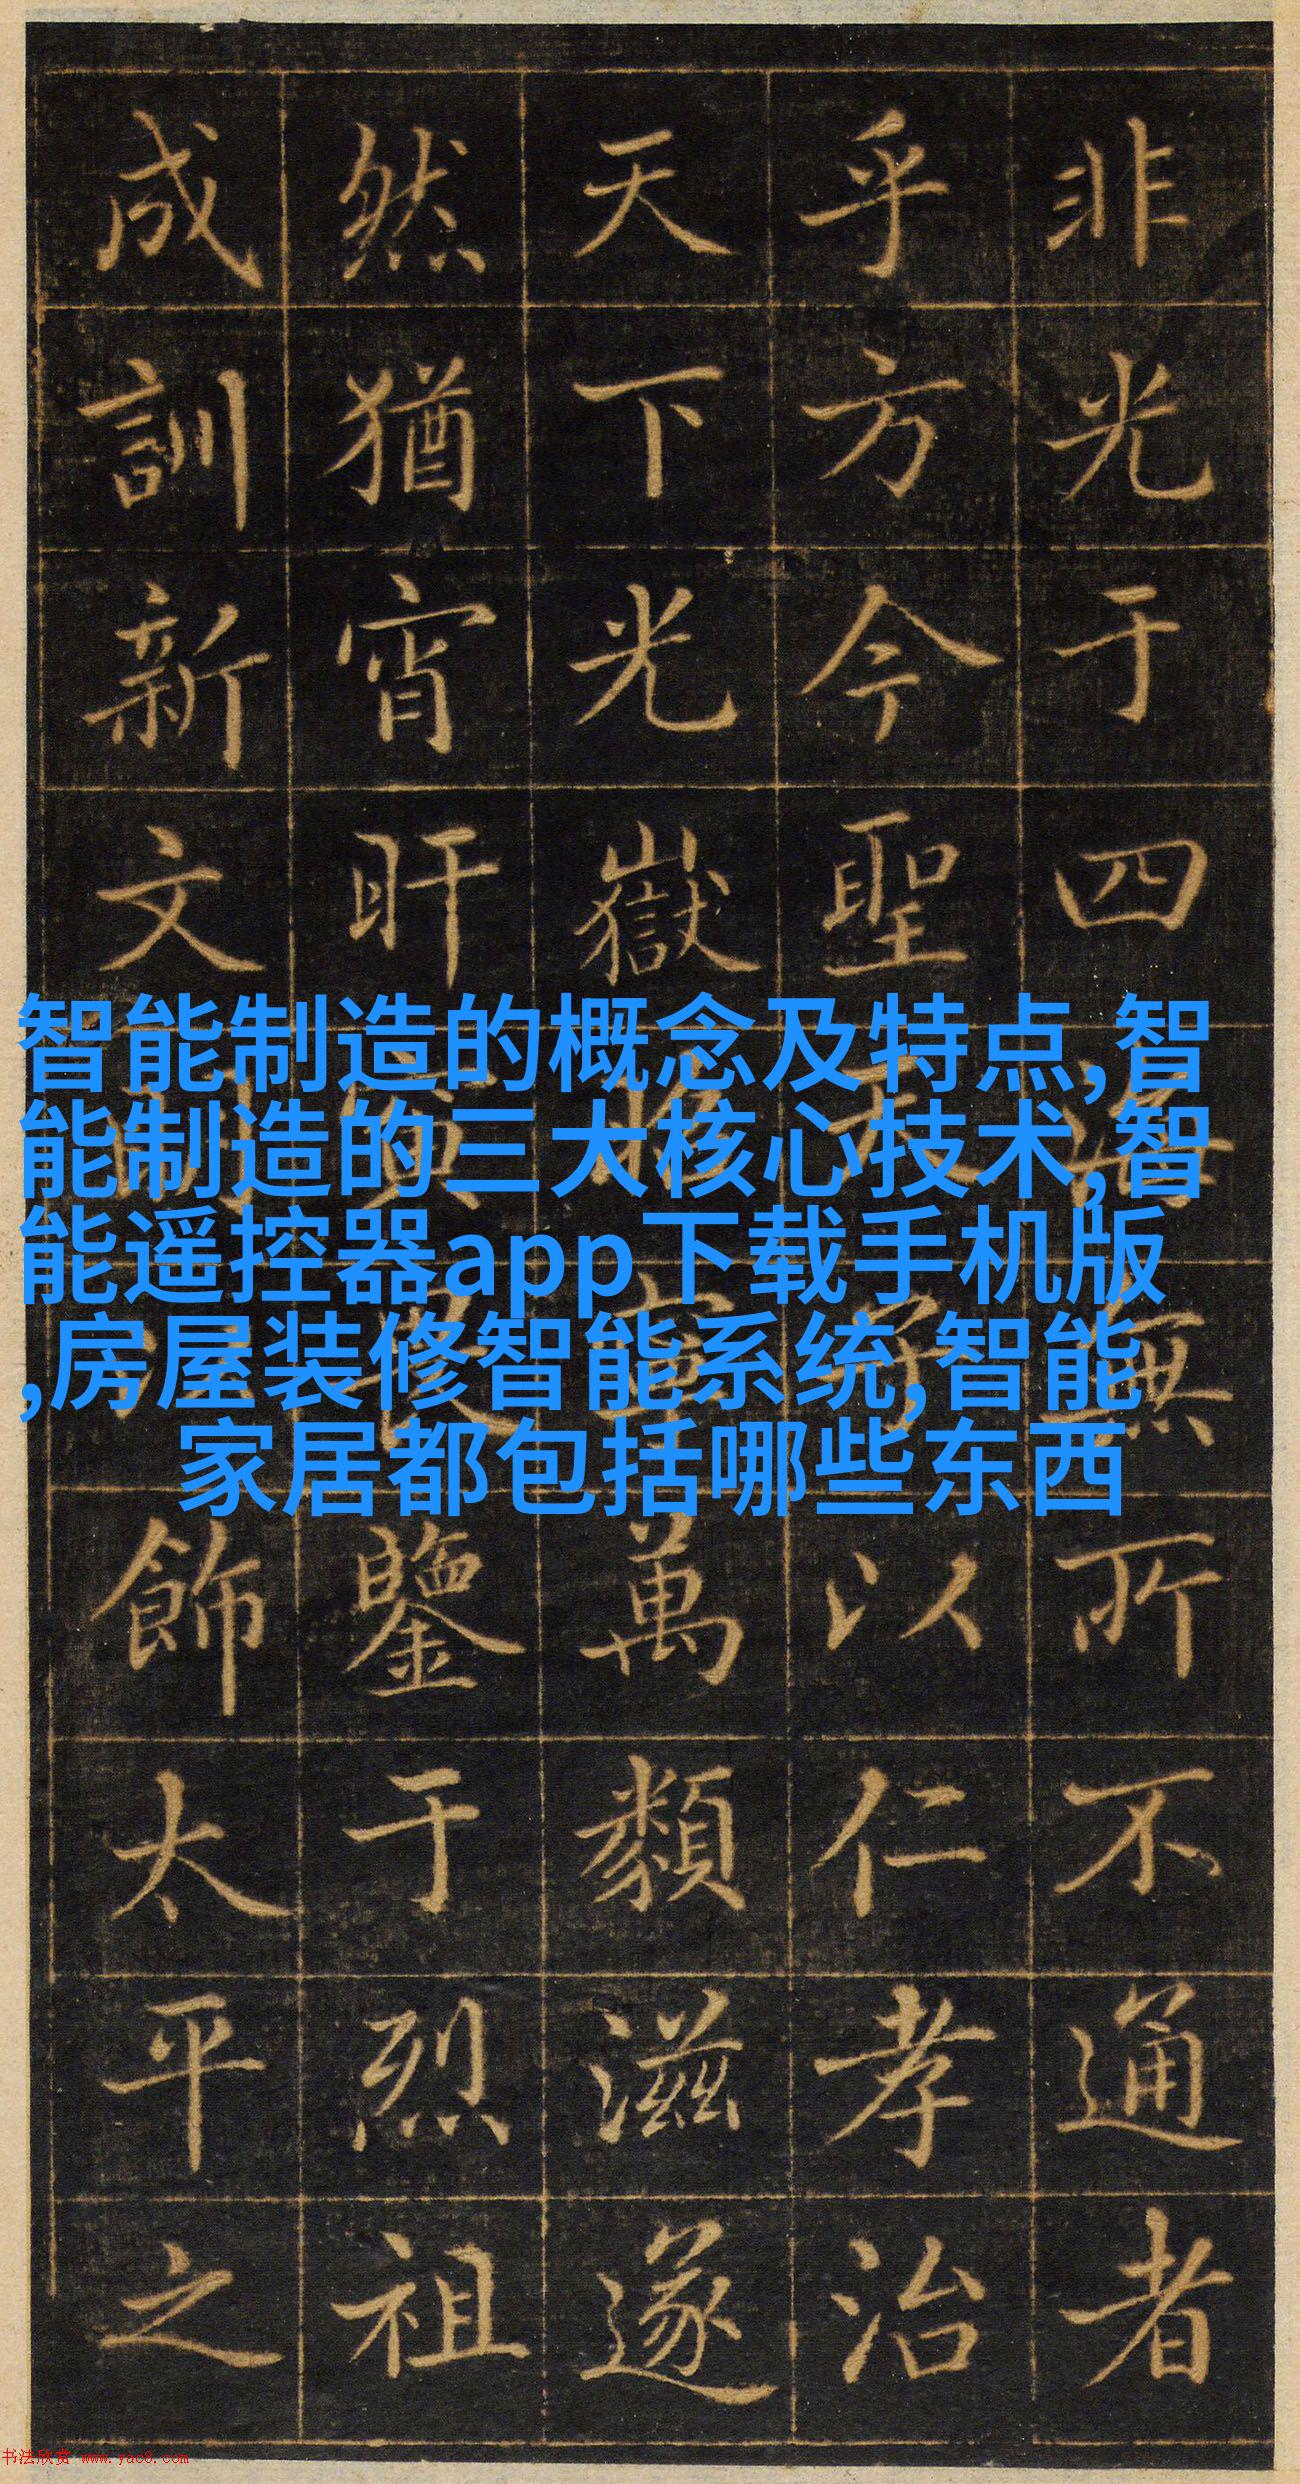 非光于四海無所不通者
乎方今聖天子以仁孝治
天下光嶽寧萬類滋遂
然猶宵旰寅畏鑒于烈祖
成訓新文飾太平之
智能制造的概念及特点,智
能制造的三大核心技术,智
能遥控器app下载手机版
,房屋装修智能系统,智能
家居都包括哪些东西
书法欣赏 www.yac8.com